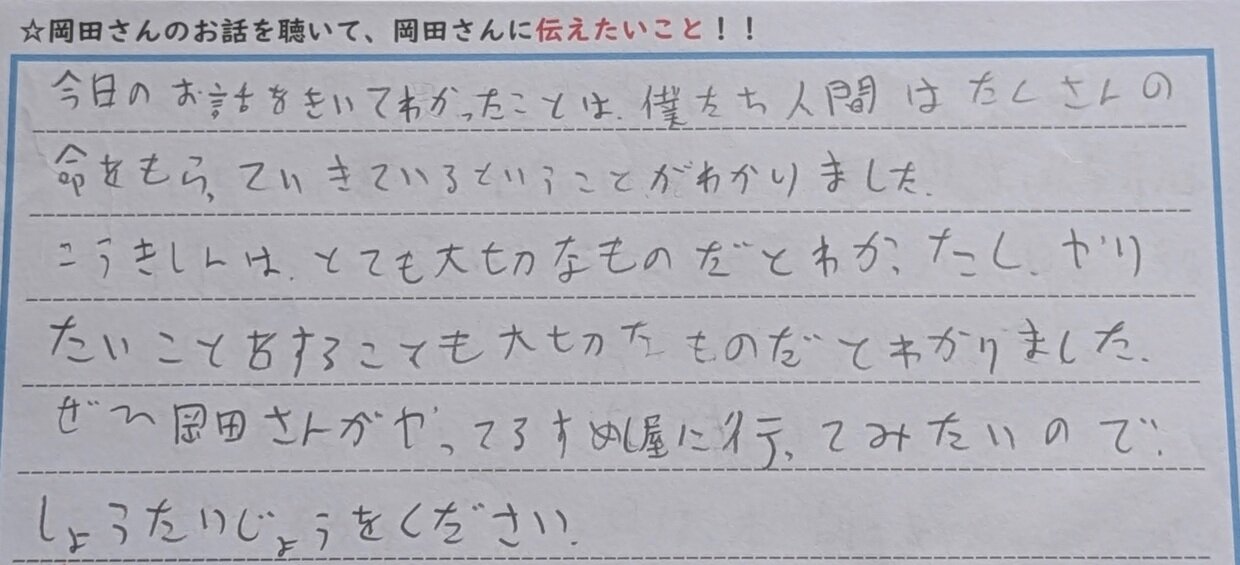 ☆岡田さんのお話を聴いて、岡田さんに伝えたいこと！！
今日のお話をきいてわかったことは、僕たち人間はたくさんの
命をもらっていきているということがわかりました。
こうきしんは、とても大切なものだとわかったし、やり
たいことをすることも大切なものだとわかりました。
ぜひ岡田さんがやってるすめし屋に行ってみたいので、
しょうたいじょうをください。